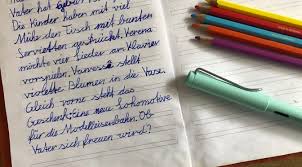 Vater hat
Die Kinder haben mit viel
Mühe den Tisch mit bunten
Servietten gestückt. Verena
möchte vier Lieder am Klavier
vorspielen. Vanessa stellt
violette Blumen in die Vase.
Gleich vorne steht das
Geschenk: Eine neue Lokomotive
für die Modelleisenbahn. Ob
Vater sich freuen wird?